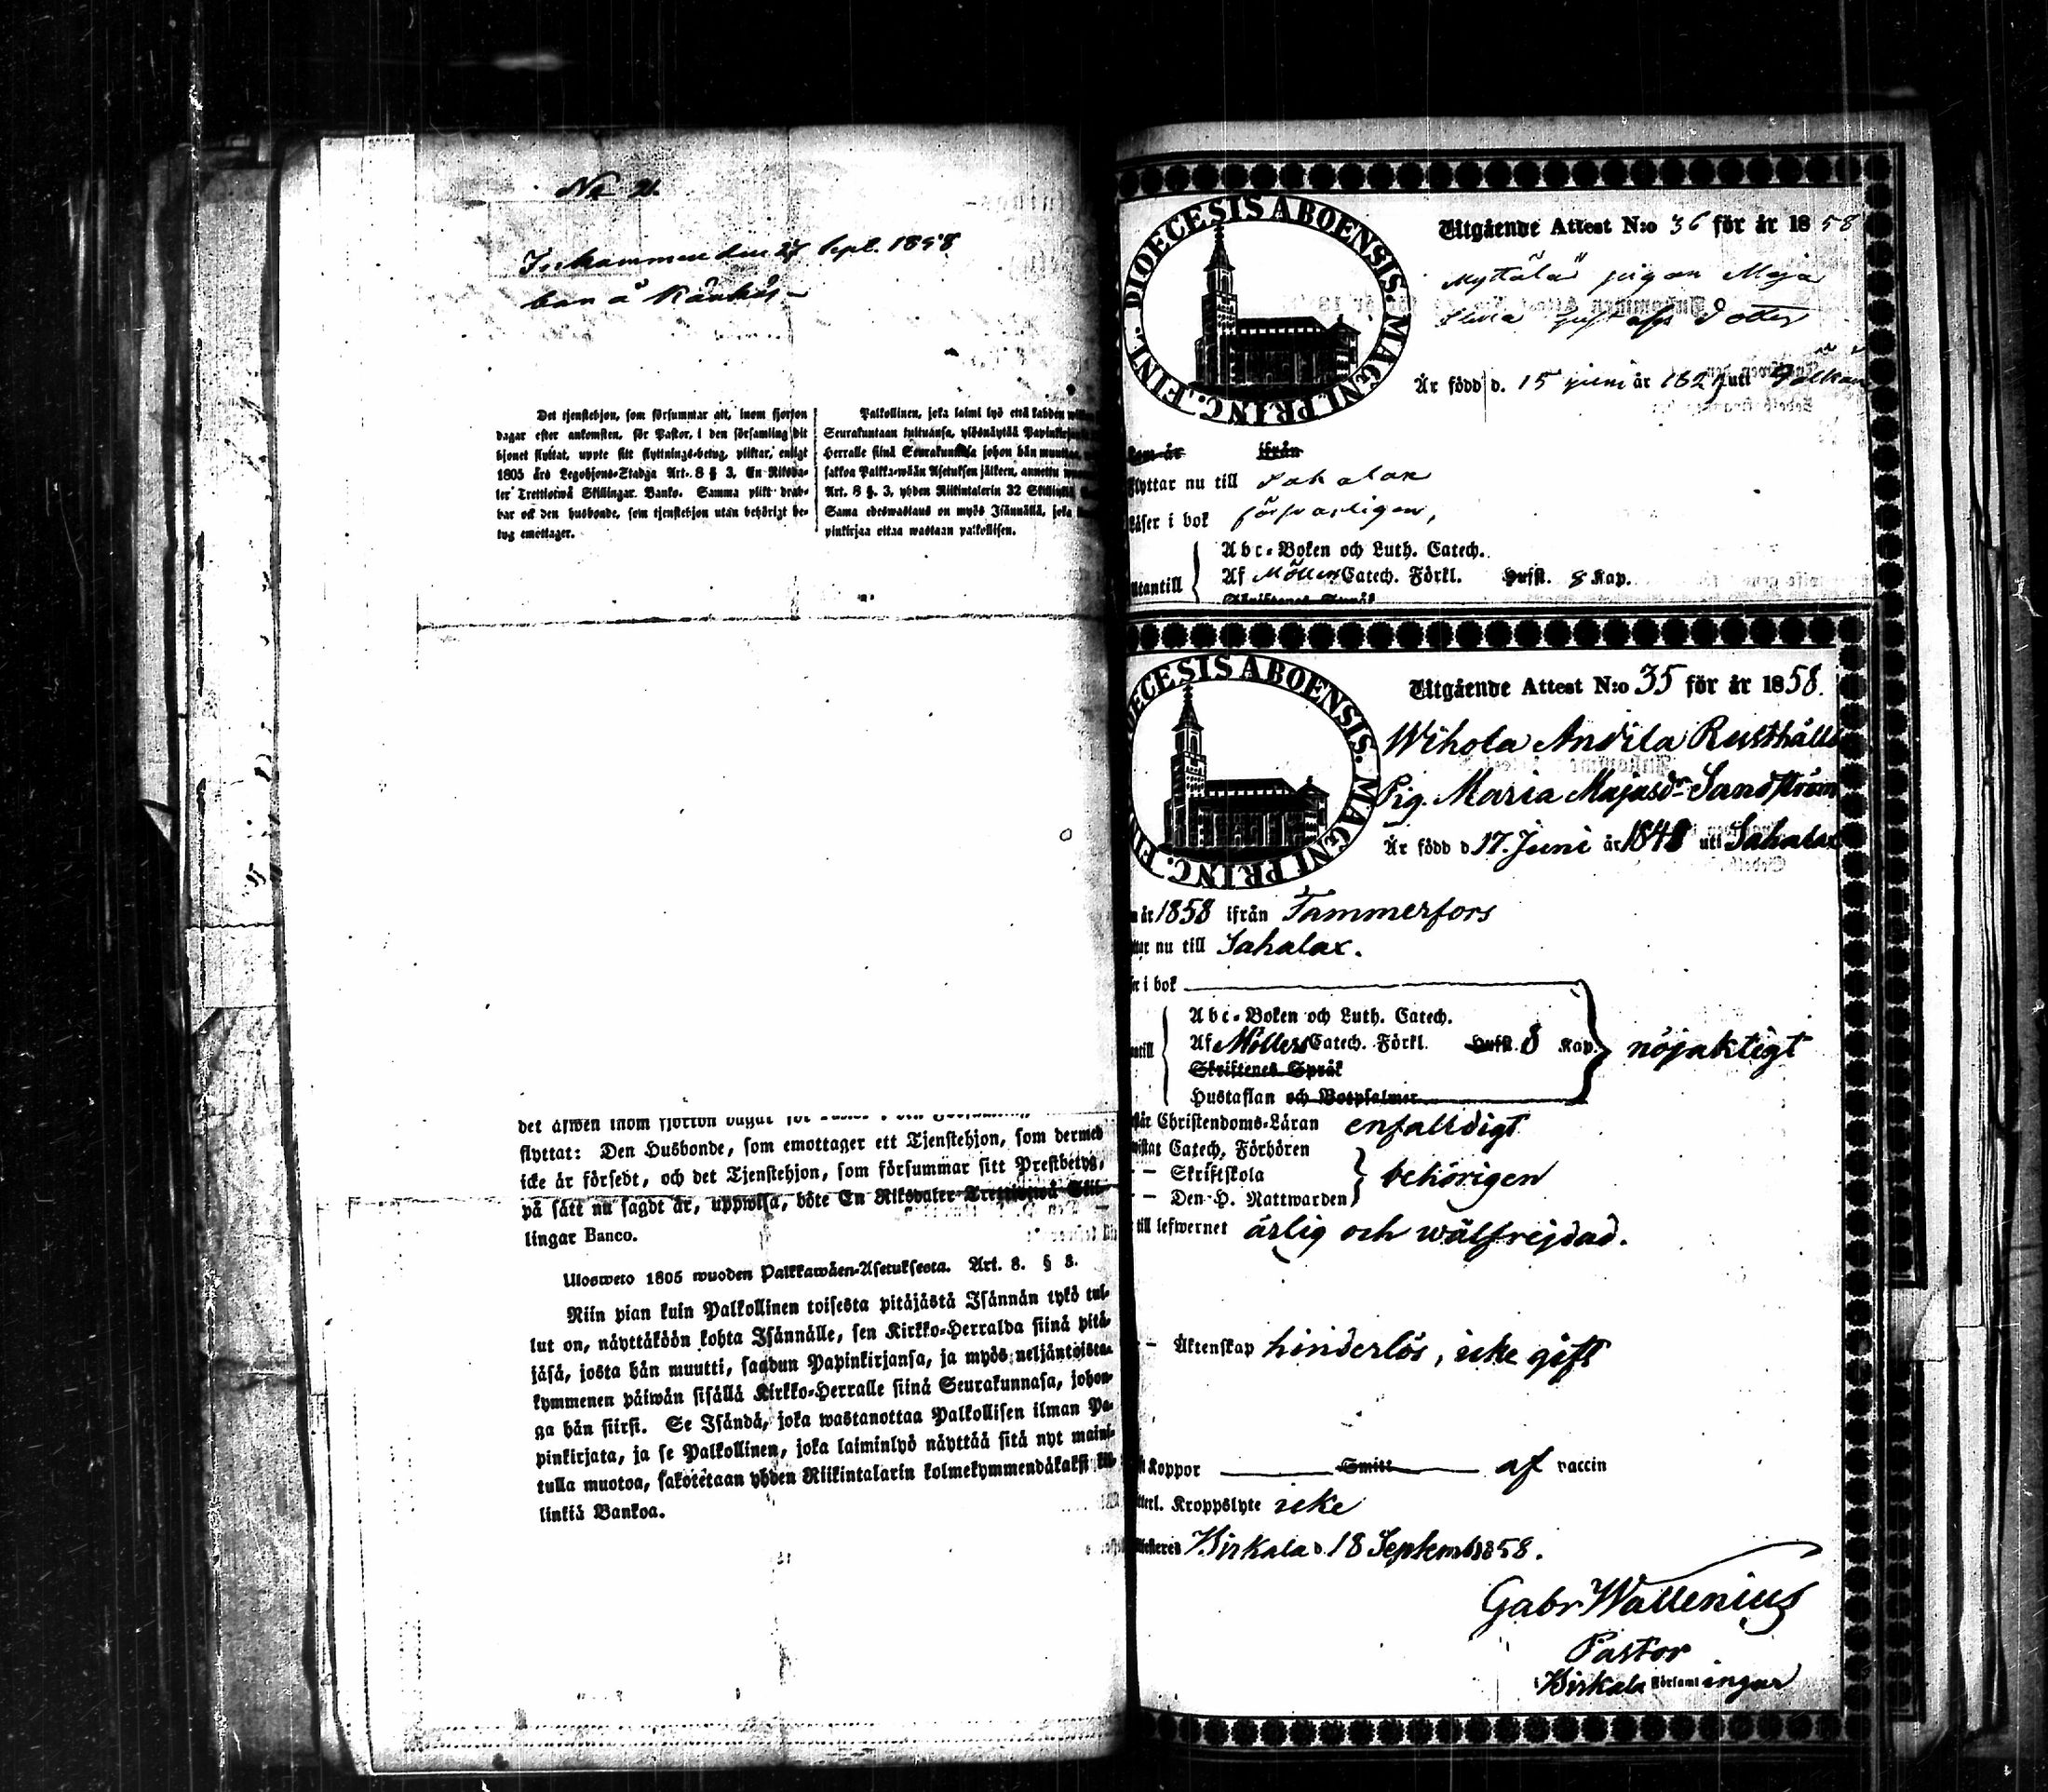 No 21.
Inkommen den 27 Sept. 1858.
Det tjenstehjon, som försummar att, inom fjorton
dagar efter ankomsten, för Pastor, i den församling dit
hjonet flyttat, uppte sitt flyttnings-betyg, pliktar, enligt
1805 års Legohjons-Stadga Art. 8 § 3. En Riksda-
ler Trettiotwå Skillingar Banko. Samma plikt drab-
bar ock den husbonde, som tjenstehjon utan behörigt be-
tyg emottager.
Palkollinen, joka laimi lyö että kahden
Seurakuntaan tultuansa, ylösnäyttää Papinkirjan
Herralle siinä Seurakunnasa johon hän muuttaa,
sakkoa Palkka-wään Asetuksen jälkeen, annettu
Art. 8 §. 3, yhden Riikintalerin 32 Skillinkiä
Sama edeswastaus on myös Isännällä, joka
pinkirjaa ottaa wastaan palkollisen.
det äfwen inom fjorton dagar för
flyttat: Den Husbonde, som emottager ett Tjenstehjon, som dermed
icke är försedt, och det Tjenstehjon, som försummar sitt Prestbetyg,
på sätt nu sagdt är, uppwisa, böte En Riksdaler Trettiotwå Skil-
lingar Banco.
Ulosweto 1805 wuoden Palkkawäen-Asetuksesta. Art. 8. § 3.
Niin pian kuin Palkollinen toisesta pitäjästä Isännän tykö tul-
lut on, näyttäköön kohta Isännälle, sen Kirkko-Herralda siinä pitä-
jäsä, josta hän muutti, saadun Papinkirjansa, ja myös neljäntoista-
kymmenen päiwän sisällä Kirkko-Herralle siinä Seurakunnasa, johon-
ga hän siirsi. Se Isändä, joka wastanottaa Palkollisen ilman Pa-
pinkirjata, ja se Palkollinen, joka laiminlyö näyttää sitä nyt maini-
tulla muotoa, sakotetaan yhden Riikintalarin kolmekymmendäkaksi kil-
linkiä Bankoa.
DIOECESIS ABOENSIS. MAGNI PRINC. FINL.
Utgående Attest N:o 36 för år 1858
Myttälä pigan Maja
Gustafs dotter
Är född d. 15 juni år uti
Som år ifrån
Flyttar nu till Sahalax
Läser i bok försvarligen,
Utantill
Abc-Boken och Luth. Catech.
Af Möllers Catech. Förkl. Husfl. 8 Kap.
Skriftenes Språk
DIOECESIS ABOENSIS. MAGNI PRINC.
Utgående Attest N:o 35 för år 1858.
Wihola Andila Rusthålls
Pig. Maria Majasdr Sandström
Är född d 17. Juni år 1848 uti Sahalax
år 1858 ifrån Tammerfors
nu till Sahalax.
i bok
Abc-Boken och Luth. Catech.
Af Möllers Catech. Förkl. Husfl. 8 Kap. nöjaktigt
Skriftenes Språk
Hustaflan och Botpsalmer
Christendoms-Läran enfalldigt
Catech. Förhören
— Skriftskola behörigen
— Den H. Nattwarden
till lefwernet ärlig och wälfrejdad.
— Äktenskap hinderlös, icke gift
Koppor Smitt af vaccin
Kroppslyte icke
Kirkala d. 18 Septemb 1858.
Gabr Wallenius
Pastor
i Kirkala Församlingar